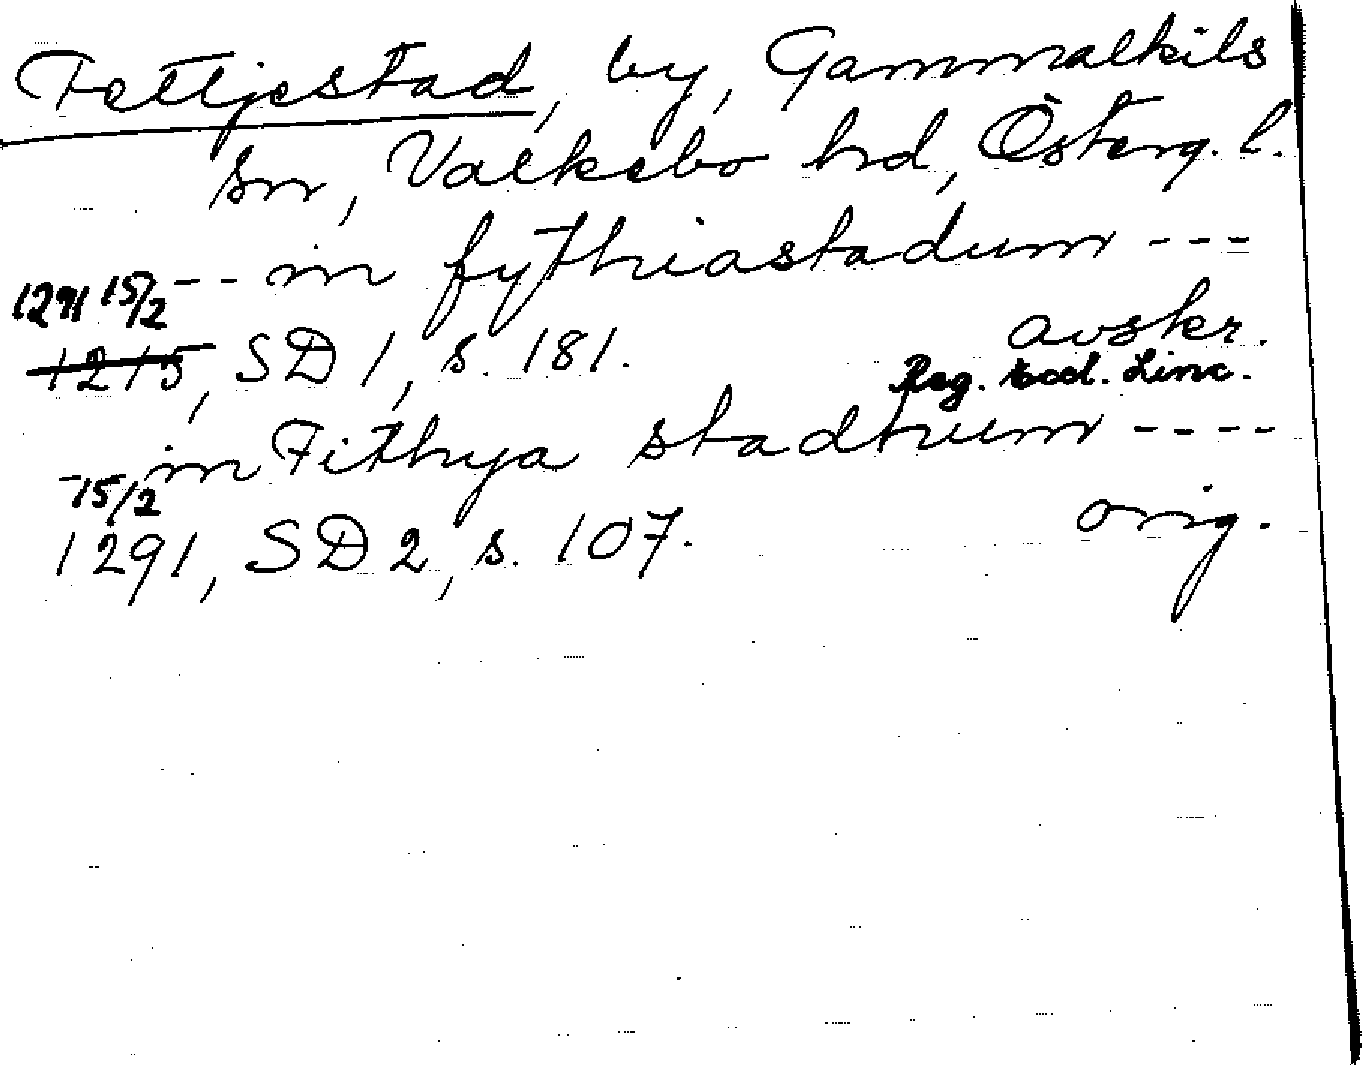 Fettjestad, by, Gammalkils
sn, Valkebo hd, Österg. l.
-- in fythiastadum ---
1291 15/2
1215, SD 1, s. 181. avskr.
Reg. Eccl. Linc.
- in Fithya stadhum ----
15/2
1291, SD 2, s. 107. orig.